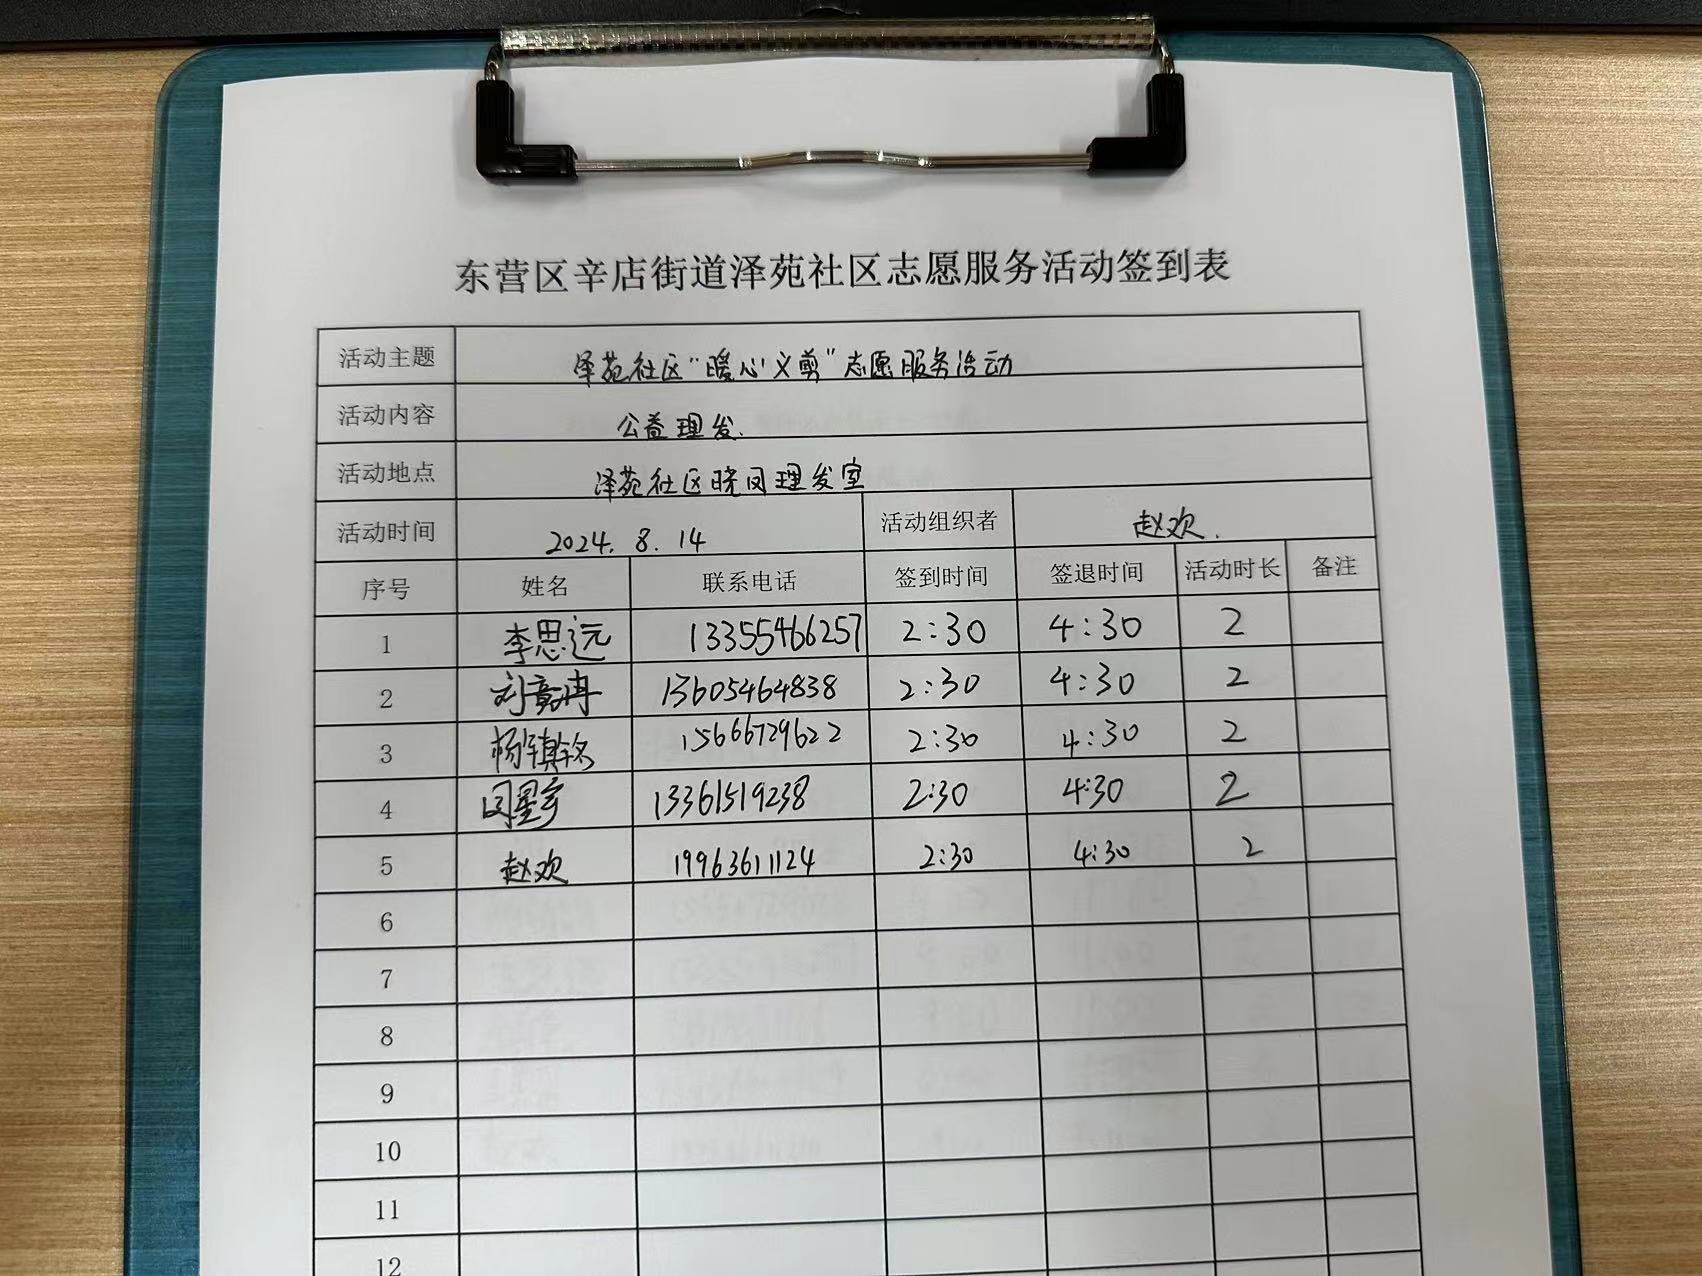 东营区辛店街道泽苑社区志愿服务活动签到表
活动主题 泽苑社区“暖心义剪”志愿服务活动
活动内容 公益理发.
活动地点 泽苑社区晓凤理发室
活动时间 2024.8.14 活动组织者 赵欢.
序号 姓名 联系电话 签到时间 签退时间 活动时长 备注
1 李思远 13355466257 2:30 4:30 2
2 13605464838 2:30 4:30 2
3 杨镇铭 15666729622 2:30 4:30 2
4 13361519238 2:30 4:30 2
5 赵欢 19963611124 2:30 4:30 2
6
7
8
9
10
11
12